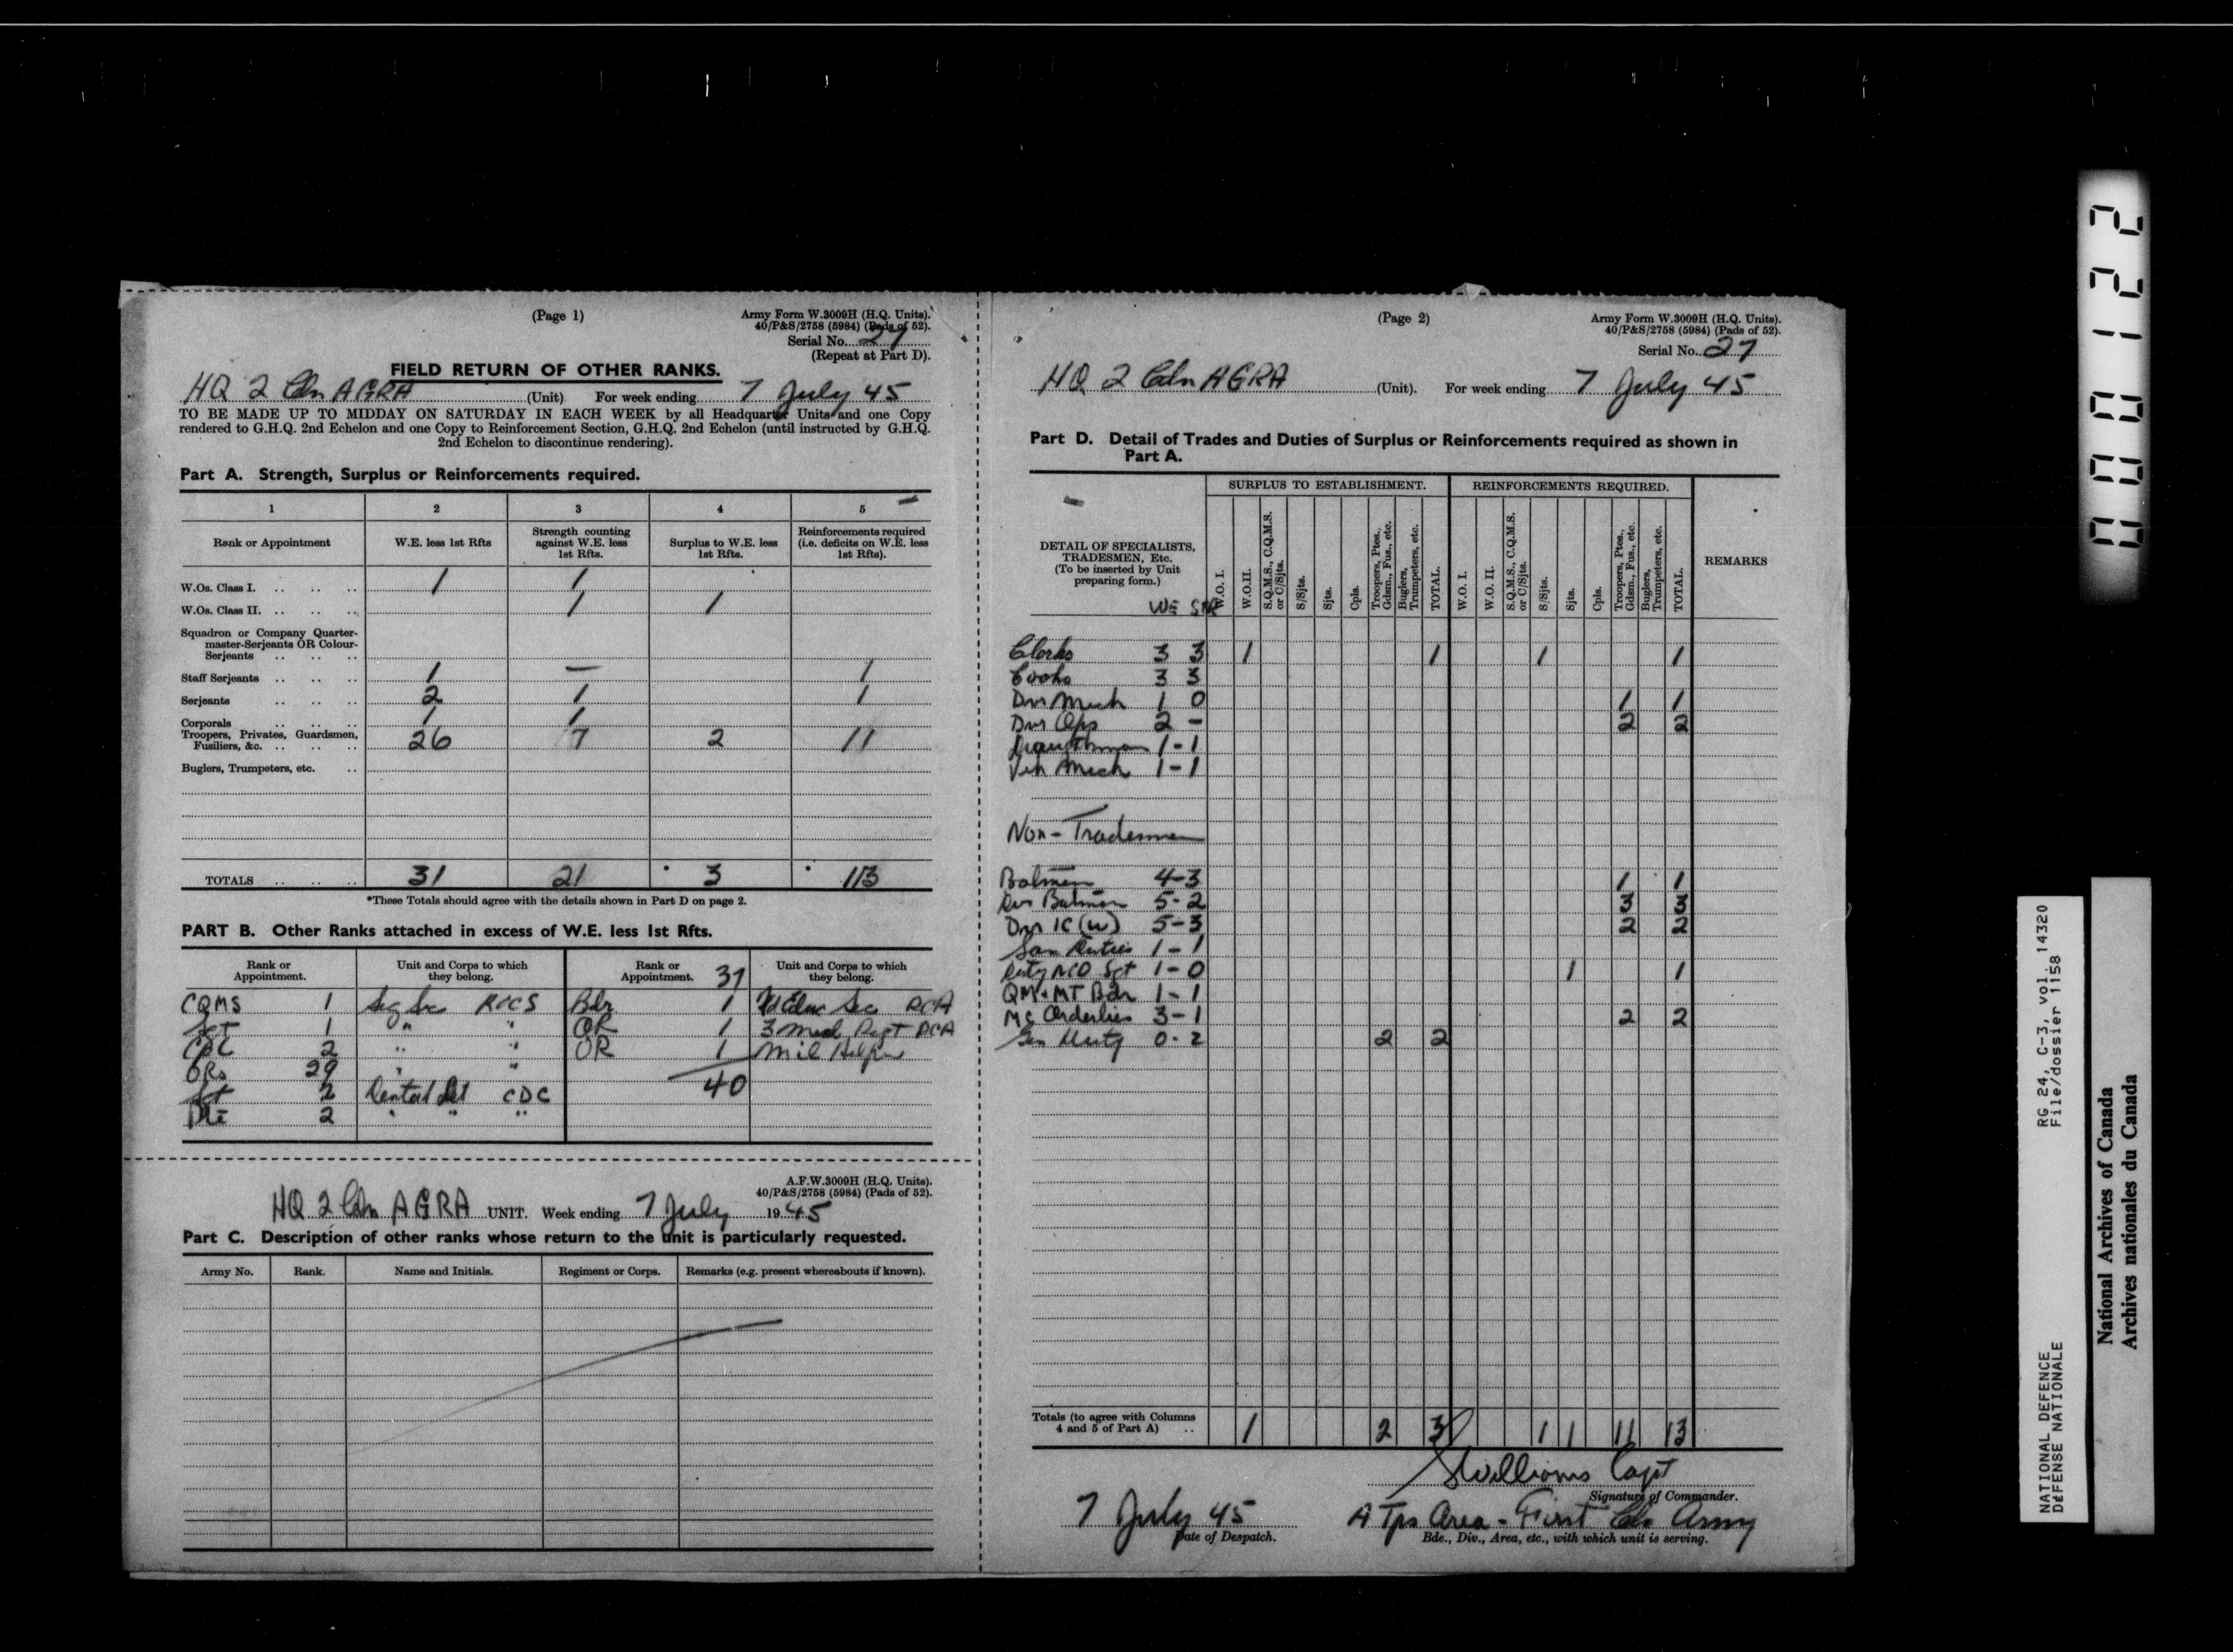 (Page 1)
Army Form W.3009H (H.Q. Units).
40/P&S/2758 (5984) (Pads of 52).
Serial No. 27
(Repeat at Part D).
FIELD RETURN OF OTHER RANKS.
HQ 2 Cdn AGRA (Unit) For week ending 7 July 45
TO BE MADE UP TO MIDDAY ON SATURDAY IN EACH WEEK by all Headquarter Units and one Copy
rendered to G.H.Q. 2nd Echelon and one Copy to Reinforcement Section, G.H.Q. 2nd Echelon (until instructed by G.H.Q.
2nd Echelon to discontinue rendering).
Part A. Strength, Surplus or Reinforcements required.
1 2 3 4 5
Rank or Appointment W.E. less 1st Rfts Strength counting against W.E. less 1st Rfts. Surplus to W.E. less 1st Rfts. Reinforcements required (i.e. deficits on W.E. less 1st Rfts).
W.Os. Class I. 1 1
W.Os. Class II. 1 1
Squadron or Company Quarter-
master-Serjeants OR Colour-
Serjeants
Staff Serjeants 1 — 1
Serjeants 2 1 1
Corporals 1 1
Troopers, Privates, Guardsmen,
Fusiliers, &c. 26 7 2 11
Buglers, Trumpeters, etc.
TOTALS 31 21 3 13
*These Totals should agree with the details shown in Part D on page 2.
PART B. Other Ranks attached in excess of W.E. less 1st Rfts.
Rank or Appointment. Unit and Corps to which they belong. Rank or Appointment. 37 Unit and Corps to which they belong.
CQMS 1 Sig Sec RCCS Bdr 1 Educ Sec RCA
Sgt 1 " " OR 1 3 Med Regt RCA
Cpl 2 " " OR 1 Mil Helper
ORs 29 " "
40
Sgt 2 Dental Det CDC
Pte 2 " " "
A.F.W.3009H (H.Q. Units).
40/P&S/2758 (5984) (Pads of 52).
HQ 2 Cdn AGRA UNIT. Week ending 7 July 1945
Part C. Description of other ranks whose return to the unit is particularly requested.
Army No. Rank. Name and Initials. Regiment or Corps. Remarks (e.g. present whereabouts if known).
(Page 2)
Army Form W.3009H (H.Q. Units).
40/P&S/2758 (5984) (Pads of 52).
Serial No. 27
HQ 2 Cdn AGRA (Unit). For week ending 7 July 45
Part D. Detail of Trades and Duties of Surplus or Reinforcements required as shown in
Part A.
SURPLUS TO ESTABLISHMENT. REINFORCEMENTS REQUIRED.
DETAIL OF SPECIALISTS,
TRADESMEN, Etc.
(To be inserted by Unit
preparing form.)
W.O. I. W.O.II. S.Q.M.S., C.Q.M.S. or C/Sjts. S/Sjts. Sjts. Cpls. Troopers, Ptes., Gdsm., Fus., etc. Buglers, Trumpeters, etc. TOTAL. W.O. I. W.O. II. S.Q.M.S., C.Q.M.S. or C/Sjts. S/Sjts. Sjts. Cpls. Troopers, Ptes., Gdsm., Fus., etc. Buglers, Trumpeters, etc. TOTAL. REMARKS
WE STR
Clerks 3 3 1 1 1 1
Cooks 3 3
Dvr Mech 1 0 1 1
Dvr Ops 2 - 2 2
Draughtsman 1-1
Veh Mech 1-1
Non-Tradesmen
Batmen 4-3 1 1
Dvr Batman 5-2 3 3
Dvr IC (W) 5-3 2 2
San Duties 1-1
Duty NCO Sgt 1-0 1 1
QM & MT Bdr 1-1
MC Orderlies 3-1 2 2
Gen Duty 0-2 2 2
Totals (to agree with Columns
4 and 5 of Part A) 1 2 3 1 1 11 13
SWilliams Capt
Signature of Commander.
7 July 45
Date of Despatch.
A Tps Area - First Cdn Army
Bde., Div., Area, etc., with which unit is serving.
000122
RG 24, C-3, vol. 14320
File/dossier 1158
NATIONAL DEFENCE
DÉFENSE NATIONALE
National Archives of Canada
Archives nationales du Canada